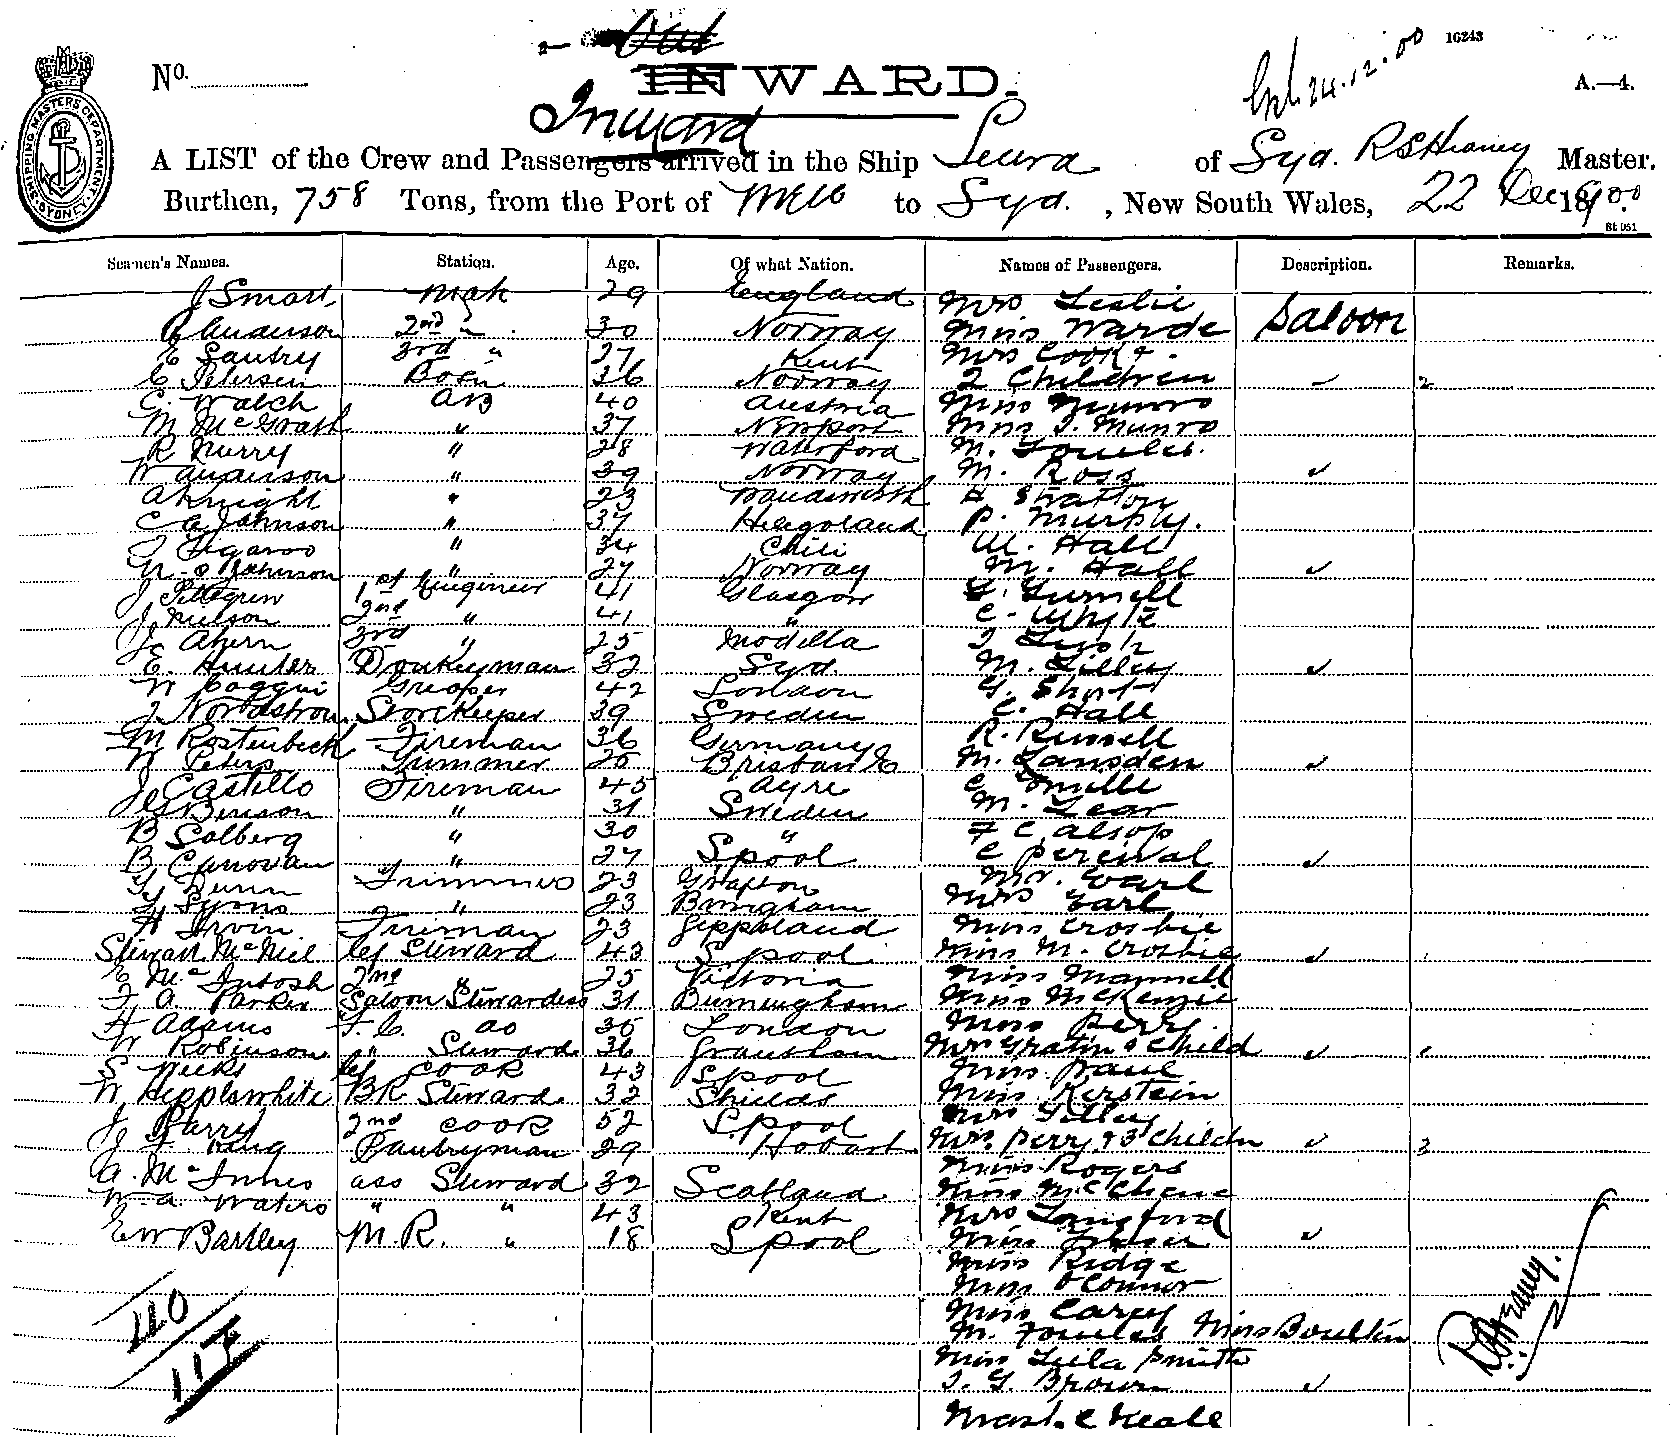 Out
16243
No.
INWARD.
24.12.00
A.—4.
Inward
A LIST of the Crew and Passengers arrived in the Ship Leura of Syd. Master.
Burthen, 758 Tons, from the Port of Melb to Syd. , New South Wales, 22 Dec 1900
St 051
SHIPPING MASTERS DEPARTMENT SYDNEY
Seamen's Names. Station. Age. Of what Nation. Names of Passengers. Description. Remarks.
J Smart Mate 29 England Mrs Leslie
Anderson 2nd " 30 Norway Miss Warde Saloon
E Sautry 3rd " 27 Kent Mrs Cook &
C Petersen Bosn 36 Norway 2 Children 2
C. Walch AB 40 Austria Miss Munro
M McGrath " 37 Newport Miss I. Munro
R Murry " 28 Waterford M.
W Anderson " 39 Norway M. Ross
A Knight " 23 Wandsworth H Stratton
C A Johnson " 37 Heligoland P. Murphy.
J Figaroo " 34 Chili W. Hall
" 27 Norway M. Hall
J Pettegrew 1st Engineer 41 Glasgow Gurnell
J Neilson 2nd " 41 " C. Whyte
J Ahern 3rd " 25
E. Hunter Donkeyman 32 Syd. M. Lilley
W Coggin Greaser 42 London G. Short
J Nordstrom Storekeeper 39 Sweden C. Hall
M Rostenbeck Fireman 36 Germany R. Russell
W Peters Trimmer 26 Brisbane M. Lansden
J Castillo Fireman 45 Ayre C
Benson " 31 Sweden M. Lear
B Solberg " 30 " F C Alsop
B Canovan " 27 Lpool C Percival
G Dunn Trimmers 23 Grafton Mr. Earl
G Lyons " 23 Birmgham Mrs Earl
H Irvin Fireman 23 Gippsland Miss Crosbie
Stewart McNeil Chf Steward 43 Lpool Miss M. Crosbie
E McIntosh 2nd " 25 Victoria Miss Mannell
F A Parker Saloon Stewardess 31 Birmingham Miss McKenzie
H Adams F.C. do 35 London Miss Perry
W Robinson " Steward 36 Grantham Mrs Gratin & Child
S Weeks Chf Cook 43 Lpool Miss Paul
W Hepplewhite BR Steward 32 Shields Miss Kerstein
J Barry 2nd Cook 52 Lpool Mrs Tilley
J King Pantryman 29 Hobart Mrs. Perry & 3 Childn 3
A. McInnes ass Steward 32 Scotland Miss Rogers
W. A. Waters " " 43 Kent Miss
E W Bartley M.R. " 18 Lpool Mrs Langford
Miss Fraser
Miss Ridge
Miss O'Connor
Miss Carey
M. Fowles Miss Boulton
Miss Lula Smith
J. G. Brown
Mast. C Neall
110
117